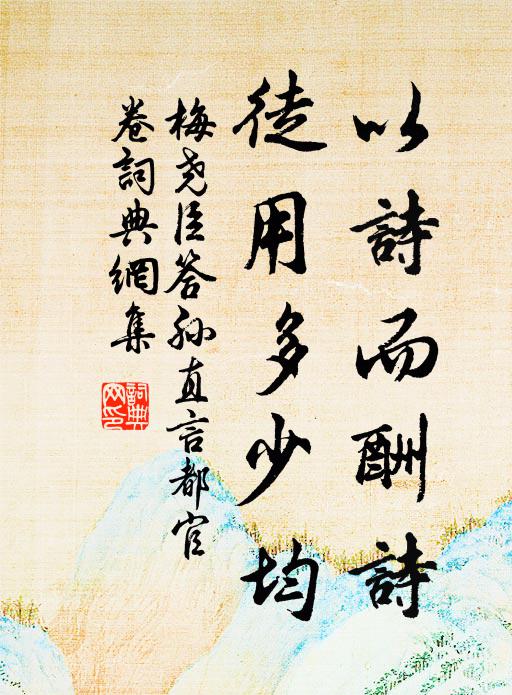 以詩而酬詩
徒用多少均
梅尧臣答孙直言都官
卷詞典網集
詞典
网印